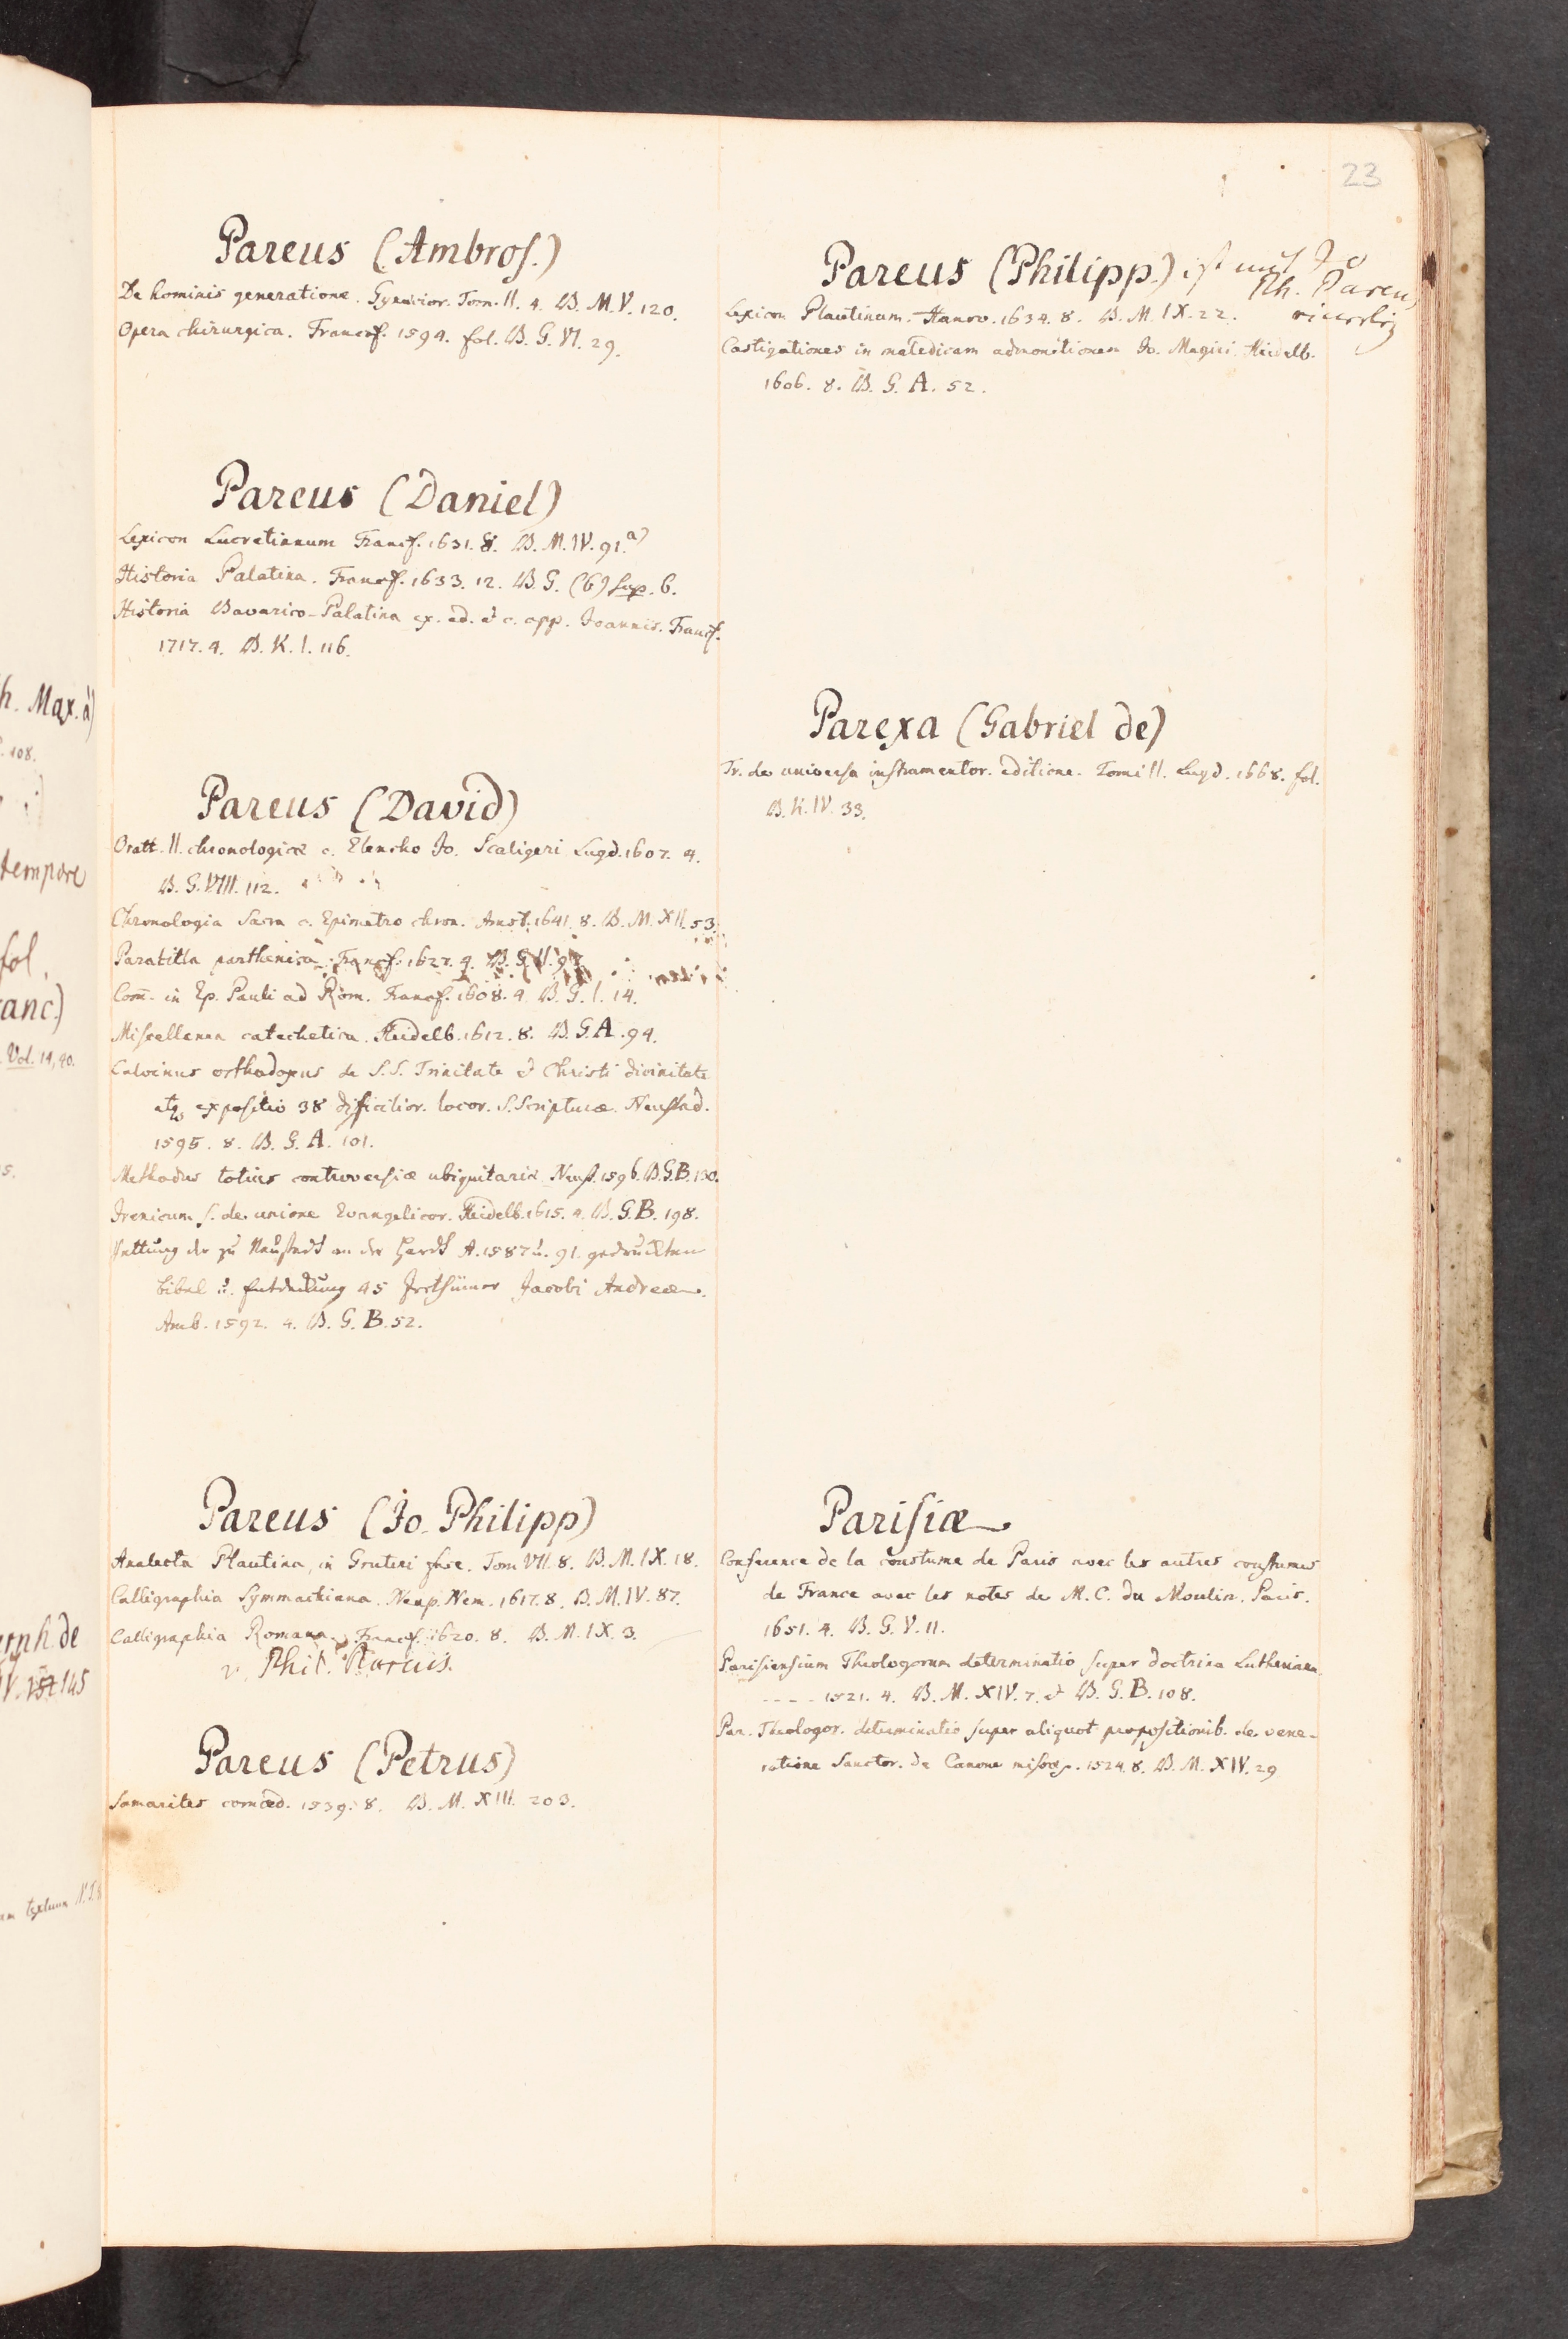 23
Pareus (Ambros.)
De hominis generatione. Gynæcior. Tom. II. 4. B. M. V. 120.
Opera chirurgica. Francof. 1594. fol. B. G. VI. 29.
Pareus (Daniel)
Lexicon Lucretianum Francf. 1631. 8. B. M. IV. 91. a)
Historia Palatina. Francof. 1633. 12. B. G. (6) Sup. 6.
Historia Bavarico-Palatina ex. ed. & c. app. Joannis. Francf.
1717. 4. B. K. I. 116.
Pareus (David)
Oratt. II. chronologicæ c. Elencho Jo. Scaligeri Lugd. 1607. 4.
B. G. VIII. 112.
Chronologia Sacra c. Epimetro chron. Amst. 1641. 8. B. M. XII. 53.
Paratitla parthenica Francf. 1627. 4. B. G. V.
Com̅. in Ep. Pauli ad Rom. Francof. 1608. 4. B. G. I. 14.
Miscellanea catechetica. Heidelb. 1612. 8. B. G. A. 94.
Calvinus orthodoxus de S. S. Trinitate & Christi divinitate
atq expositio 38 difficilior. locor. S. Scripturæ. Neustad.
1595. 8. B. G. A. 101.
Methodus totius controversiæ ubiquitariæ Neust. 1596. B. G. B. 130.
Irenicum s. de unione Evangelicor. Heidelb. 1615. 4. B. G. B. 198.
Rettung der zu Neustadt an der Hardt A. 1587 u. 91. gedruckten
bibel u. Entdeckung 45 Irrthümer Jacobi Andreæ.
Amb. 1592. 4. B. G. B. 52.
Pareus (Jo. Philipp)
Analecta Plautina, in Gruteri Tom VII. 8. B. M. IX. 18.
Calligraphia Symmachiana. Neap. Nem. 1617. 8. B. M. IV. 87.
Calligraphia Romana. Francf. 1620. 8. B. M. IX. 3.
v. Phil. Pareus.
Pareus (Petrus)
Samarites comœd. 1539. 8. B. M. XIII. 203.
Pareus (Philipp.) ist mit Jo
Ph. Pareus
Lexicon Plautinum. Hanov. 1634. 8. B. M. IX. 22. einerley
Castigationes in maledicam admonitionem Jo. Magiri. Heidelb.
1606. 8. B. G. A. 52.
Parexa (Gabriel de)
Tr. de universa instrumentor. editione. Tomi II. Lugd. 1668. fol.
B. K. IV. 33.
Parisiæ
Conference de la coustume de Paris avec les autres coustumes
de France avec les notes de M. C. du Moulin. Paris.
1651. 4. B. G. V. 11.
Parisiensium Theologorum determinatio super doctrina Lutheriana.
- - - - 1521. 4. B. M. XIV. 7. & B. G. B. 108.
Par. Theologor. determinatio super aliquot propositionib. de vene-
ratione Sanctor. de Canone 1524. 8. B. M. XIV. 29